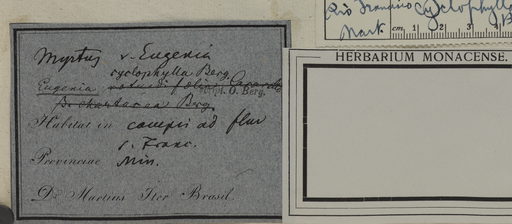 Rio Francisco cyclophylla
Mart. cm 1 2 3 4
HERBARIUM MONACENSE.
Myrtus v. Eugenia
cyclophylla Berg.
Eugenia rotundifolia Casaretto
script. O. Berg.
Berg.
Habitat in campis ad fluv
S. Franc.
Provinciae Min.
Dr. Martius Iter Brasil.